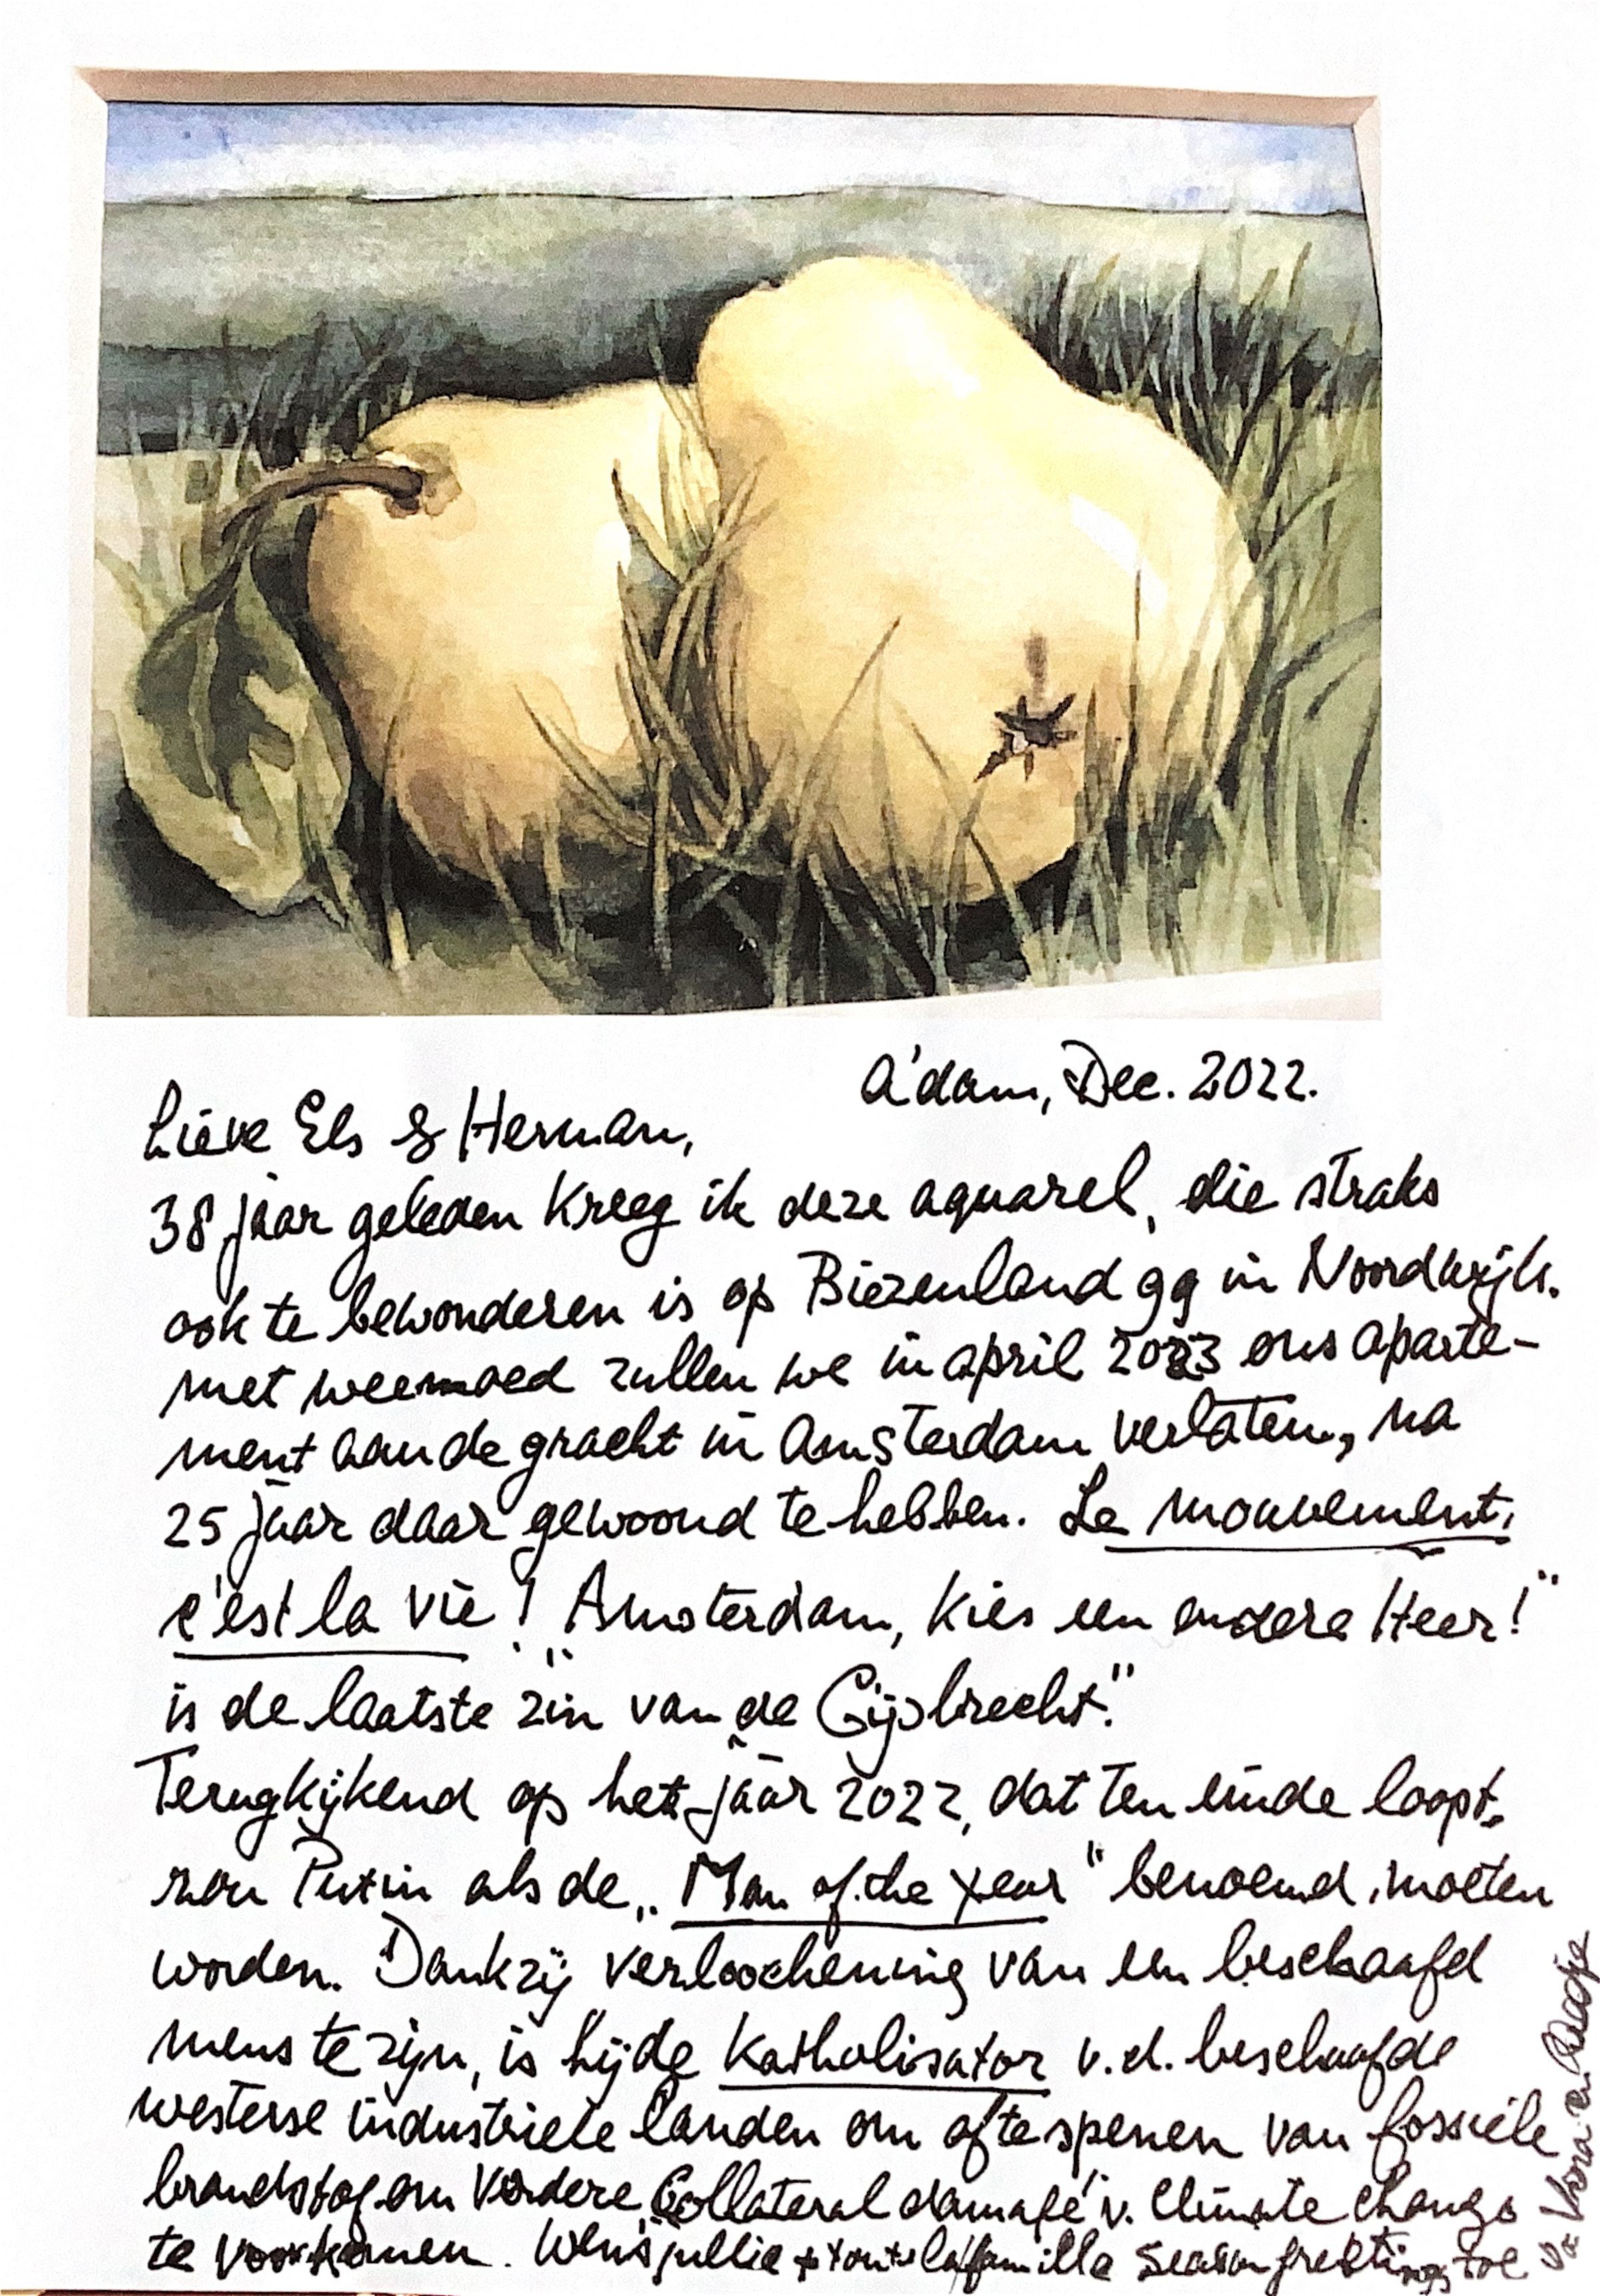 A'dam, Dec. 2022.
Lieve Els & Herman,
38 jaar geleden kreeg ik deze aquarel, die straks
ook te bewonderen is op Biezenland 99 in Noordwijk.
met weemoed zullen we in april 2023 ons aparte-
ment aan de gracht in Amsterdam verlaten, na
25 jaar daar gewoond te hebben. Le mouvement,
c'est la vie! "Amsterdam, kies een andere Heer!"
is de laatste zin van de "Gijsbrecht."
Terugkijkend op het jaar 2022, dat ten einde loopt,
zou Putin als de „Man of the Year" benoemd moeten
worden. Dankzij verloochening van een beschaafd
mens te zijn, is hij de Katholisator v.d. beschaafde
westerse industriele landen om af te spenen van fossiele
brandstof om verdere „Collateral damage" v. Climate change
te voorkomen. Wens jullie + toute la familla season greetings toe